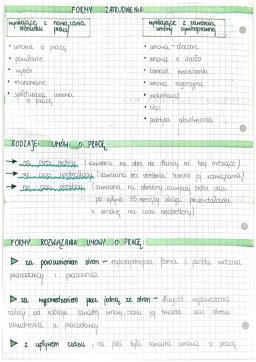 FORMY ZATRUDNIENIA
wynikające z nawiązania stosunku pracy
• umowa o pracę
• powołanie
• wybór
• mianowanie
• spółdzielcza umowa o pracę
wynikające z zawarcia umowy cywilnoprawnej
• umowa - zlecenie
• umowa o dzieło
• kontrakt menedżerski
• umowa agencyjna
• wolontariat
• staż
• praktyka absolwencka
RODZAJE UMÓW O PRACĘ
→ na okres próbny (zawierana na okres nie dłuższy niż trzy miesiące)
→ na czas nieokreślony (zawierana bez określenia terminu jej rozwiązania)
→ na czas określony (zawierana na określony czas
po upływie 33 miesięcy ulega przekształceniu
w umowę na czas nieokreślony)
FORMY ROZWIĄZANIA UMOWY O PRACĘ:
▷ za porozumieniem stron - forma z punktu widzenia
pracodawcy i pracownika
▷ za wypowiedzeniem przez jedną ze stron - długość wypowiedzenia
zależy od rodzaju zawartej umowy, czasu jej trwania oraz okresu
zatrudnienia u pracodawcy
▷ z upływem czasu, na jaki była zawarta umowa o pracę